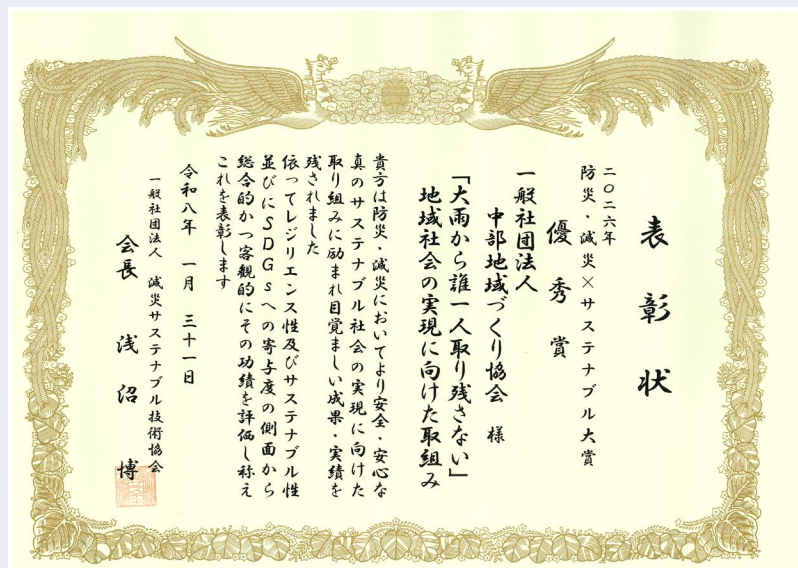 表彰状
二〇二六年
防災・減災×サステナブル大賞
優秀賞
一般社団法人
中部地域づくり協会 様
「大雨から誰一人取り残さない」
地域社会の実現に向けた取組み
貴方は防災・減災においてより安全・安心な
真のサステナブル社会の実現に向けた
取り組みに励まれ目覚ましい成果・実績を
残されました
依ってレジリエンス性及びサステナブル性
並びにSDGsへの寄与度の側面から
総合的かつ客観的にその功績を評価し称え
これを表彰します
令和八年 一月 三十一日
一般社団法人 減災サステナブル技術協会
会長 浅沼 博